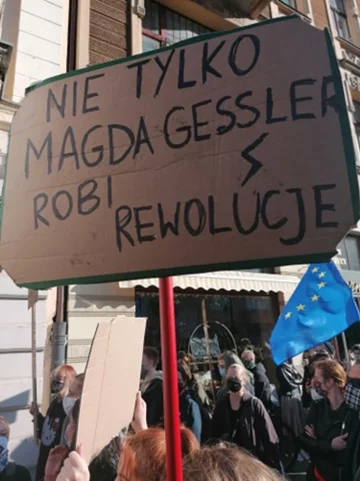 NIE TYLKO
MAGDA GESSLER
ROBI
REWOLUCJE